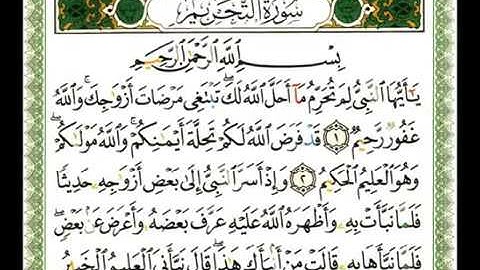 سُورَةُ التَّحْرِيمِ
بِسْمِ اللَّهِ الرَّحْمَٰنِ الرَّحِيمِ
يَا أَيُّهَا النَّبِيُّ لِمَ تُحَرِّمُ مَا أَحَلَّ اللَّهُ لَكَ ۖ تَبْتَغِي مَرْضَاتَ أَزْوَاجِكَ ۚ وَاللَّهُ
غَفُورٌ رَّحِيمٌ ١ قَدْ فَرَضَ اللَّهُ لَكُمْ تَحِلَّةَ أَيْمَانِكُمْ ۚ وَاللَّهُ مَوْلَاكُمْ ۖ
وَهُوَ الْعَلِيمُ الْحَكِيمُ ٢ وَإِذْ أَسَرَّ النَّبِيُّ إِلَىٰ بَعْضِ أَزْوَاجِهِ حَدِيثًا
فَلَمَّا نَبَّأَتْ بِهِ وَأَظْهَرَهُ اللَّهُ عَلَيْهِ عَرَّفَ بَعْضَهُ وَأَعْرَضَ عَن بَعْضٍ ۖ
فَلَمَّا نَبَّأَهَا بِهِ قَالَتْ مَنْ أَنبَأَكَ هَٰذَا ۖ قَالَ نَبَّأَنِيَ الْعَلِيمُ الْخَبِيرُ